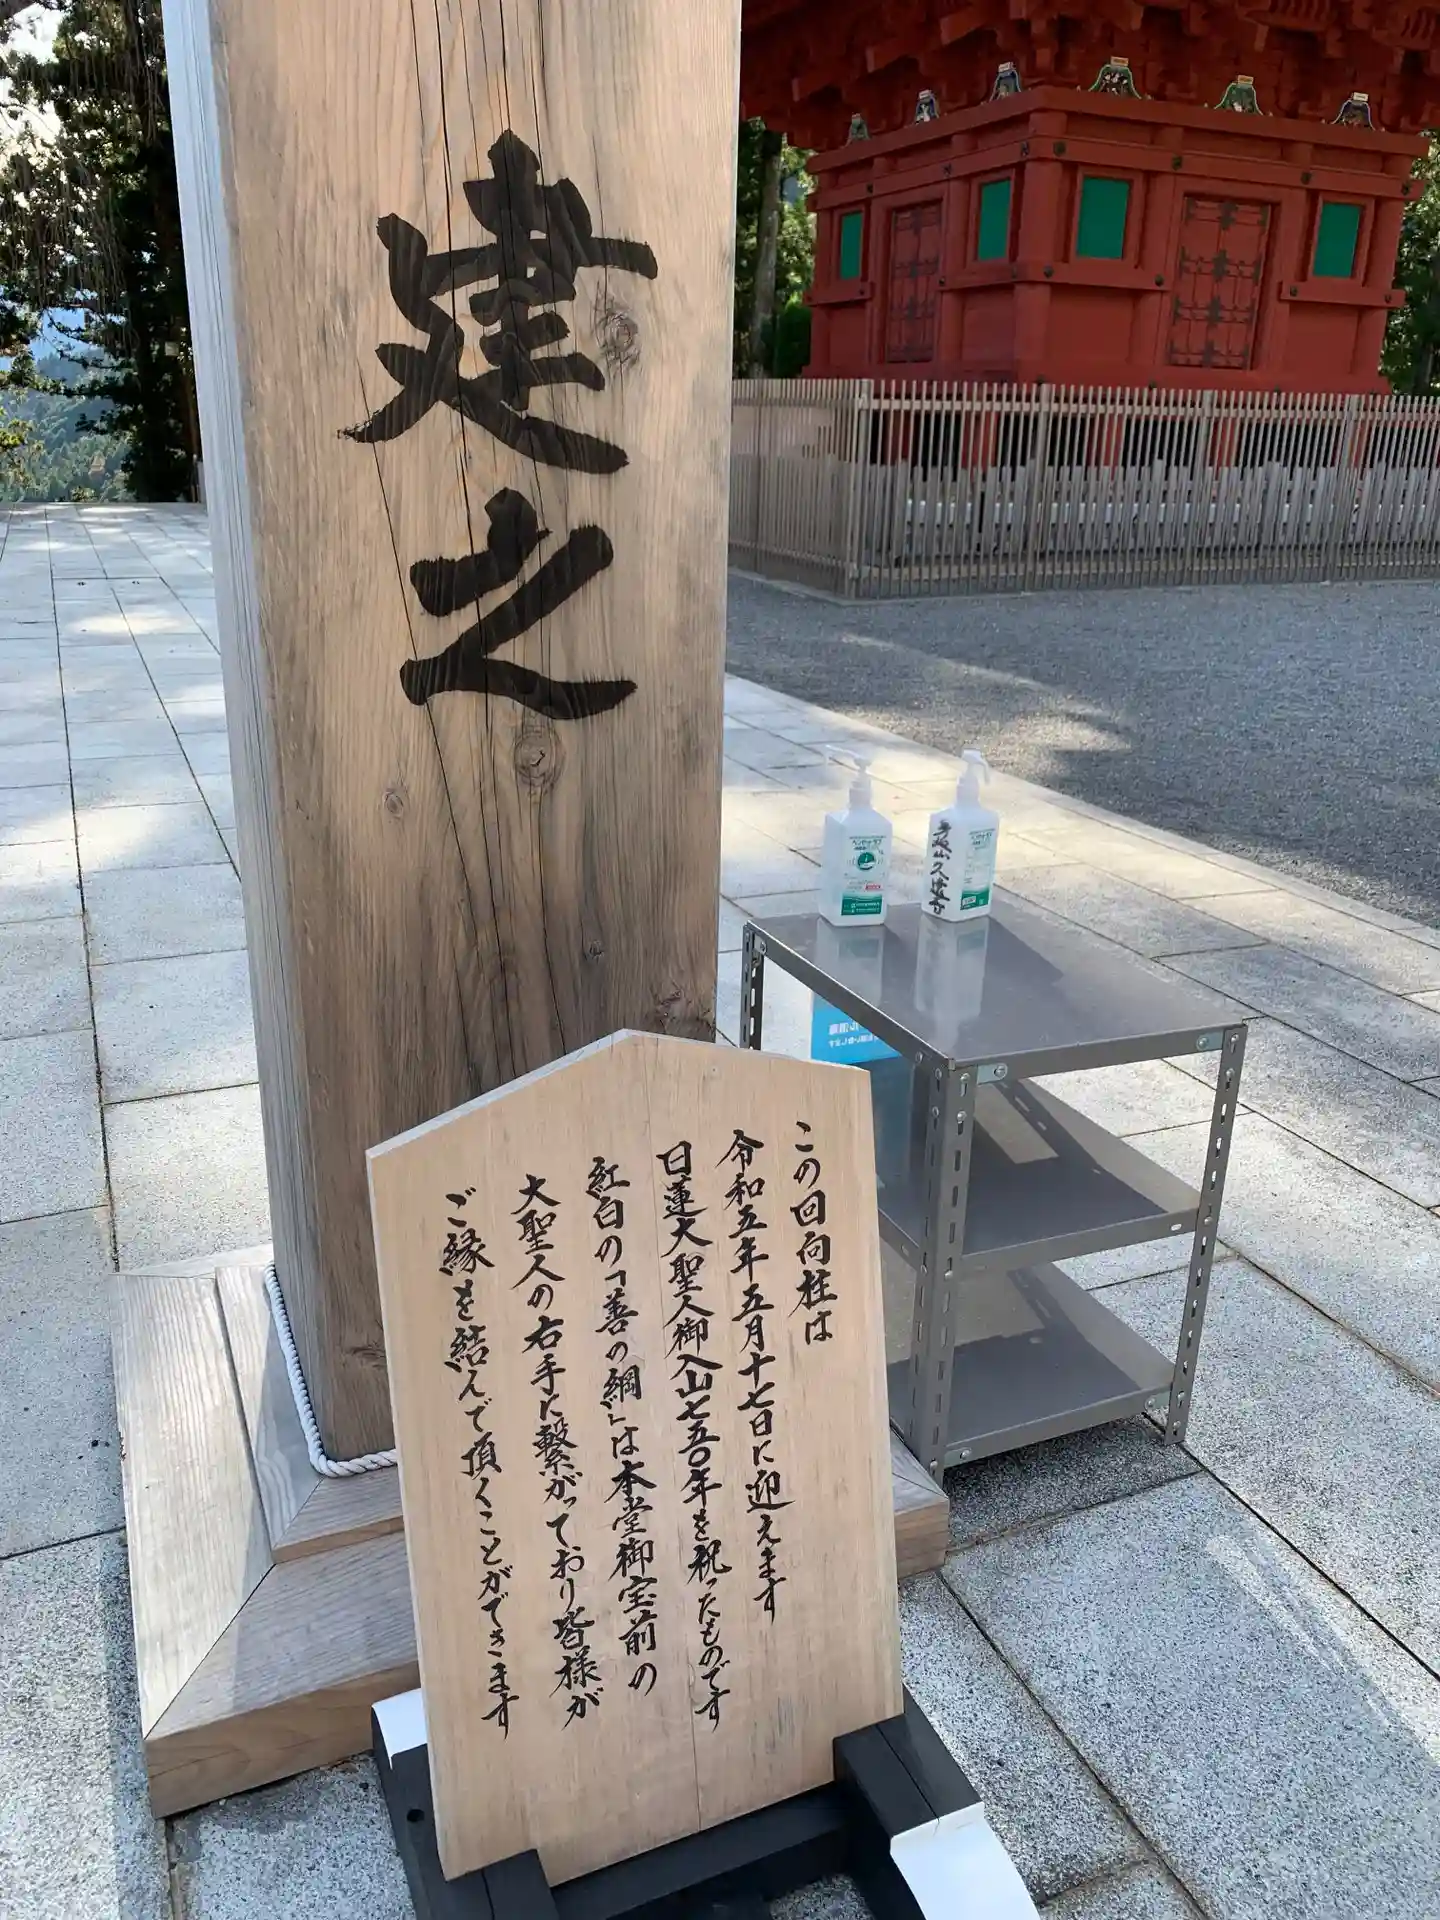 建之
この回向柱は
令和五年五月十七日に迎えます
日蓮大聖人御入山七五〇年を祝ったものです
紅白の「善の綱」は本堂御宝前の
大聖人の右手に繋がっており皆様が
ご縁を結んで頂くことができます
身延山久遠寺